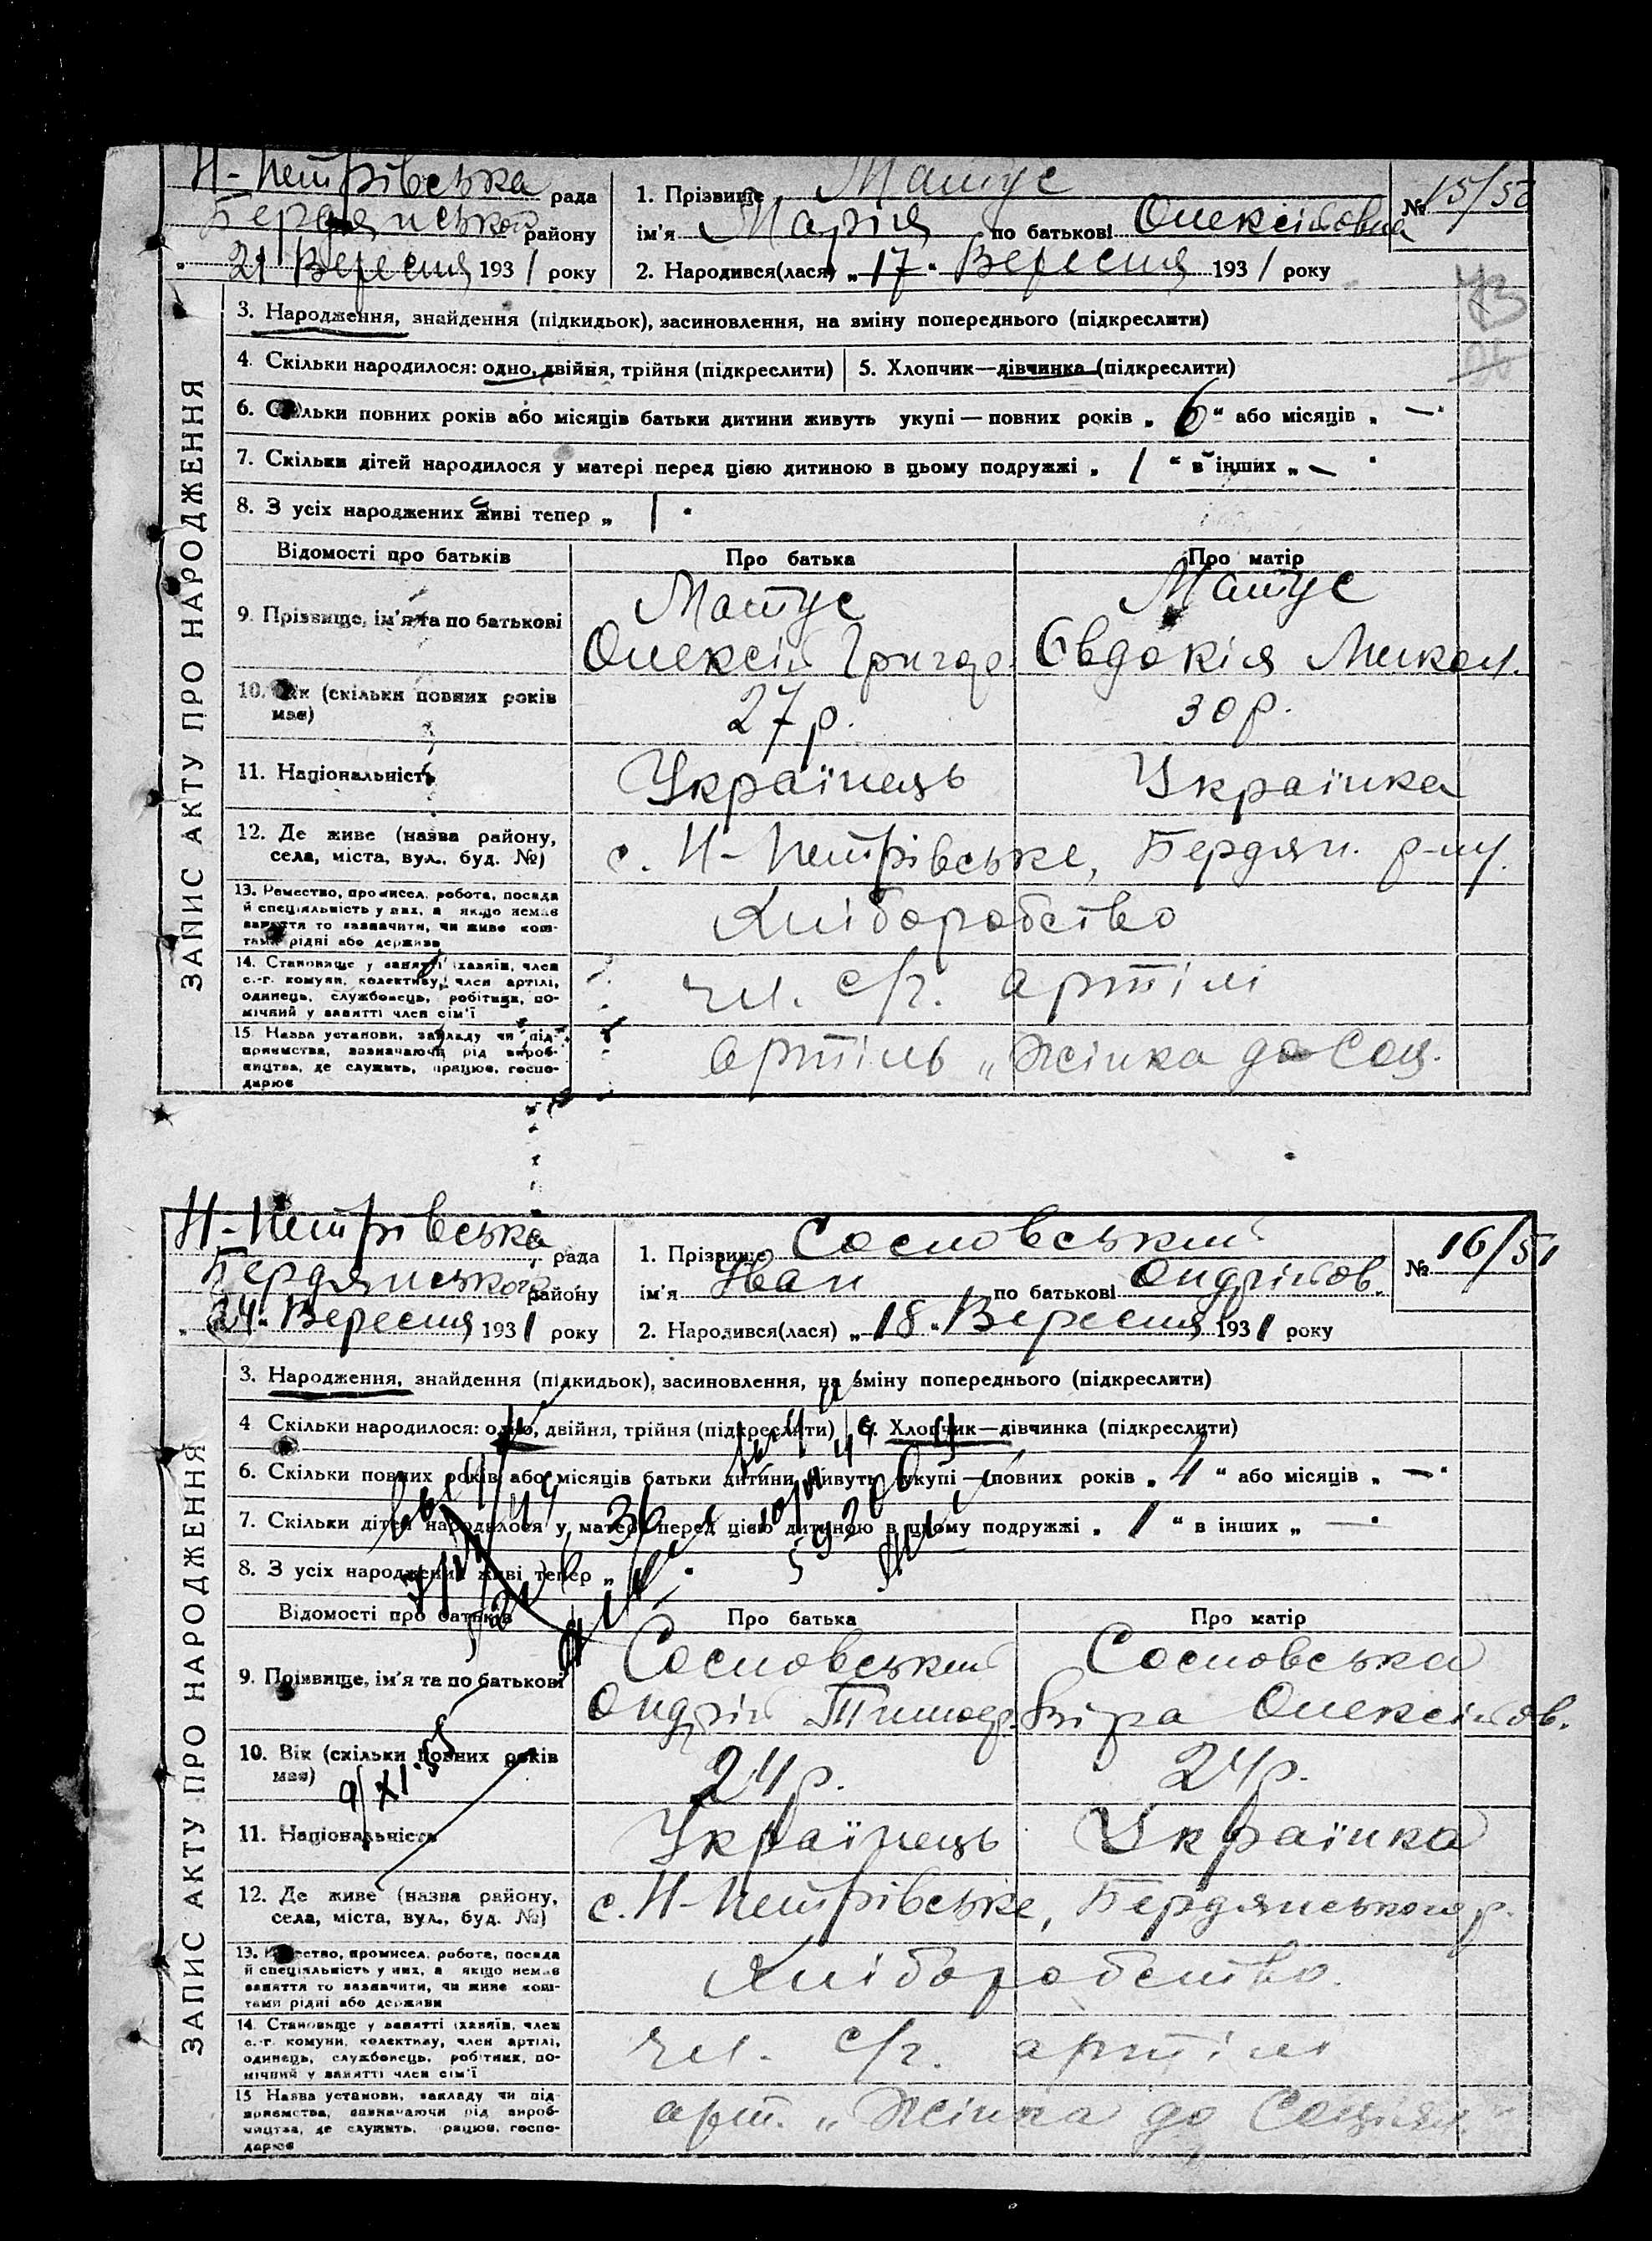 Н-Петрівська рада
Бердянської району
"21" Вересня 1931 року
1. Прізвище Матус
ім'я Марія по батькові Олексіївна
2. Народився(лася) „17" Вересня 1931 року
№ 15/50
43
ЗАПИС АКТУ ПРО НАРОДЖЕННЯ
3. Народження, знайдення (підкидьок), засиновлення, на зміну попереднього (підкреслити)
4. Скільки народилося: одно, двійня, трійня (підкреслити)
5. Хлопчик—дівчинка (підкреслити)
6. Скільки повних років або місяців батьки дитини живуть укупі — повних років „6" або місяців „—"
7. Скільки дітей народилося у матері перед цією дитиною в цьому подружжі „1" в інших „—"
8. З усіх народжених живі тепер „1"
Відомості про батьків Про батька Про матір
9. Прізвище, ім'я та по батькові
Матус
Олексій Григор.
Матус
Євдокія Микол.
10. Вік (скільки повних років має)
27 р.
30 р.
11. Національність
Українець
Українка
12. Де живе (назва району,
села, міста, вул., буд. №)
с. Н-Петрівське, Бердян. р-ну.
13. Ремество, промисел, робота, посада
й спеціяльність у них, а якщо немає
заняття то зазначити, чи живе кош-
тами рідні або держави
Хліборобство
14. Становище у занятті (хазяїн, член
с.-г. комуни, колективу, член артілі,
одинець, службовець, робітник, по-
мічний у занятті член сім'ї
чл. с/г. артілі
15. Назва установи, закладу чи під-
приємства, зазначаючи рід вироб-
ництва, де служить, працює, госпо-
дарює
артіль „Жінка до Соц.
Н-Петрівська рада
Бердянського району
"24" Вересня 1931 року
1. Прізвище Сосновський
ім'я Іван по батькові Ондрійов.
2. Народився(лася) „18" Вересня 1931 року
№ 16/51
ЗАПИС АКТУ ПРО НАРОДЖЕННЯ
3. Народження, знайдення (підкидьок), засиновлення, на зміну попереднього (підкреслити)
4 Скільки народилося: одно, двійня, трійня (підкреслити)
5. Хлопчик—дівчинка (підкреслити)
6. Скільки повних років або місяців батьки дитини живуть укупі — повних років „4" або місяців „—"
7. Скільки дітей народилося у матері перед цією дитиною в цьому подружжі „1" в інших „—"
8. З усіх народжених живі тепер „
Відомості про батьків Про батька Про матір
9. Прізвище, ім'я та по батькові
Сосновський
Ондрій Тимоф.
Сосновська
Віра Олексійов.
10. Вік (скільки повних років має)
24 р.
24 р.
9/XI-55
11. Національність
Українець
Українка
12. Де живе (назва району,
села, міста, вул., буд. №)
с. Н-Петрівське, Бердянського р.
13. Ремество, промисел, робота, посада
й спеціяльність у них, а якщо немає
заняття то зазначити, чи живе кош-
тами рідні або держави
Хліборобство.
14. Становище у занятті (хазяїн, член
с.-г. комуни, колективу, член артілі,
одинець, службовець, робітник, по-
мічний у занятті член сім'ї
чл. с/г. артілі
15 Назва установи, закладу чи під-
приємства, зазначаючи рід вироб-
ництва, де служить, працює, госпо-
дарює
арт. „Жінка до Соціял.